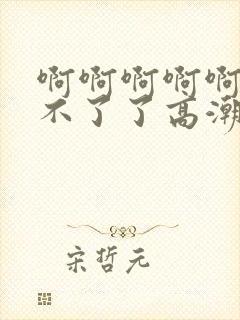 啊啊啊啊啊
不了了高潮
宋哲元